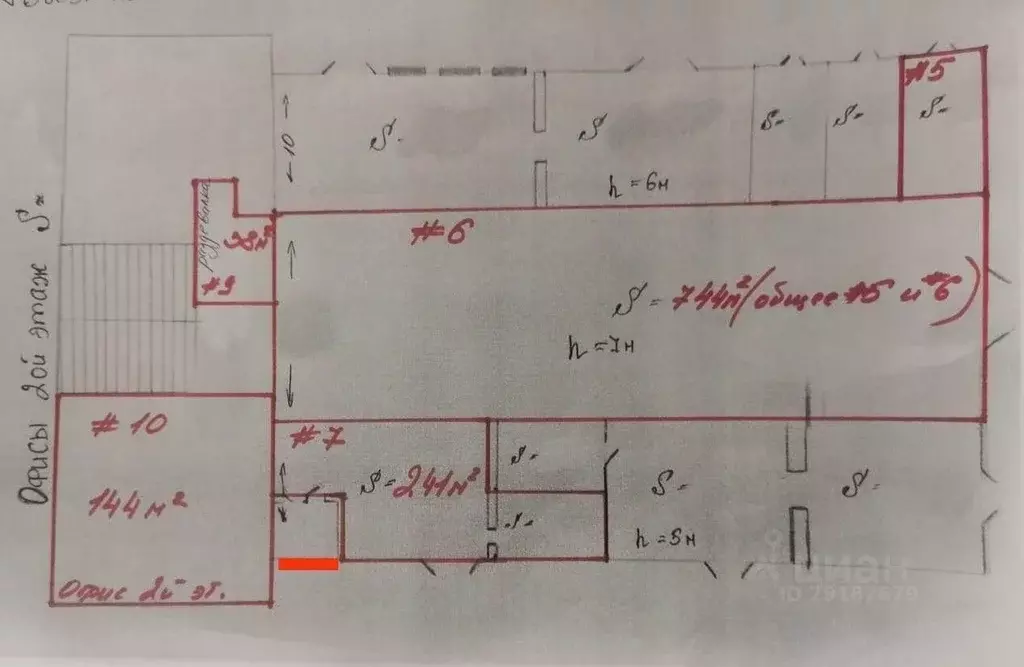 #5
S-
S
S-
S-
S-
10
h=6м
раздевалка
38м²
#9
#6
S=744м²(общее #5 и #6)
h=7м
Офисы 2ой этаж S=
#10
144м²
Офис 2й эт.
#7
S-241м²
S-
S-
S-
S-
h=5м
циан
ID 79187679